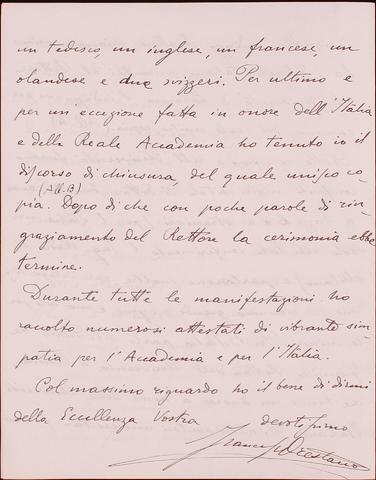 un tedesco, un inglese, un francese, un
olandese e due svizzeri. Per ultimo e
per un'eccezione fatta in onore dell'Italia
e della Reale Accademia ho tenuto io il
discorso di chiusura, del quale unisco co-
(All. B)
pia. Dopo di che con poche parole di rin-
graziamento del Rettore la cerimonia ebbe
termine.
Durante tutte le manifestazioni ho
raccolto numerosi attestati di vibrante sim-
patia per l'Accademia e per l'Italia.
Col massimo riguardo ho il bene di dirmi
della Eccellenza Vostra devotissimo
Francesco Orestano